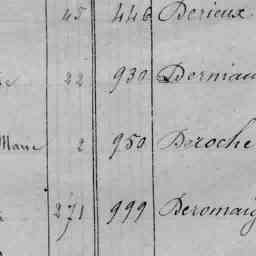 45 446 Derieux
22 930 Derniau
Marie 2 950 Deroche
271 999 Deromaig